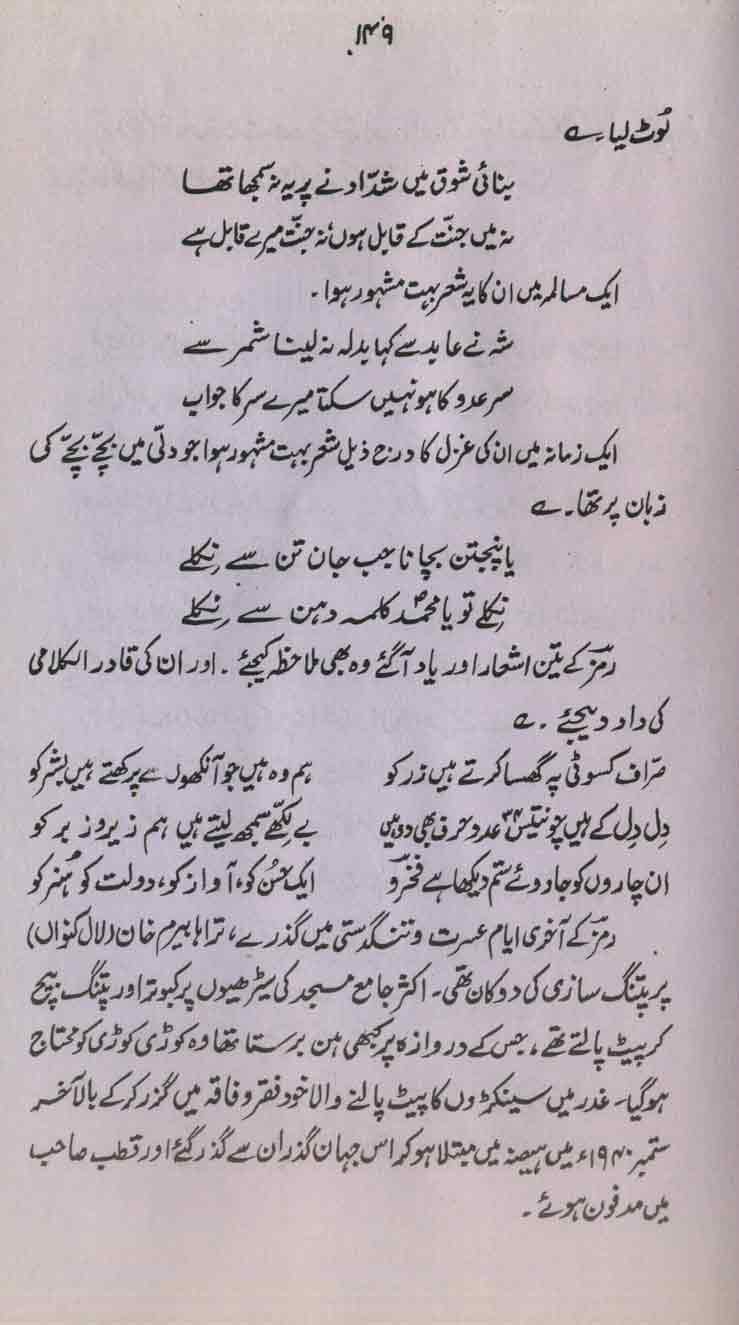 ۱۴۹
لُوٹ لیا۔ ؎
بنائی شوق میں شدّاد نے پر یہ نہ سمجھا تھا
نہ میں جنّت کے قابل ہوں نہ جنّت میرے قابل ہے
ایک مسالمہ میں ان کا یہ شعر بہت مشہور ہوا۔
شہ نے عابد سے کہا بدلہ نہ لینا شمر سے
سرِ عدو کا ہو نہیں سکتا میرے سر کا جواب
ایک زمانہ میں ان کی غزل کا درج ذیل شعر بہت مشہور ہوا جو دلّی میں بچّے بچّے کی
زبان پر تھا۔ ؎
یا پنجتن بچانا جب جان تن سے نِکلے
نِکلے تو یا محمدؐ کلمہ دہن سے نِکلے
رمزؔ کے تین اشعار اور یاد آگئے وہ بھی ملاحظہ کیجئے۔ اور ان کی قادر الکلامی
کی داد دیجئے۔ ؎
صرّاف کسوٹی پہ گھسا کرتے ہیں زر کو ہم وہ ہیں جو آنکھوں سے پرکھتے ہیں بشر کو
دِل دِل کے ہیں چونتیس ۳۴ عدد حرف بھی دو ہیں بے لکھّے سمجھ لیتے ہیں ہم زیر و زبر کو
ان چاروں کو جادوئے ستم دیکھا ہے فخروؔ ایک حُسن کو، آواز کو، دولت کو ہُنر کو
رمزؔ کے آخری ایام عسرت و تنگدستی میں گذرے، تراہا بیرم خان (لال کنواں)
پر پتنگ سازی کی دوکان تھی۔ اکثر جامع مسجد کی سیڑھیوں پر کبوتر اور پتنگ بیچ
کر پیٹ پالتے تھے، جس کے دروازہ پر کبھی ہن برستا تھا وہ کوڑی کوڑی کو محتاج
ہو گیا۔ غدر میں سینکڑوں کا پیٹ پالنے والا خود فقر و فاقہ میں گزر کر کے بالآخر
ستمبر ۱۹۴۰ء میں ہیضہ میں مبتلا ہو کر اس جہان گذران سے گذر گئے اور قطب صاحب
میں مدفون ہوئے۔